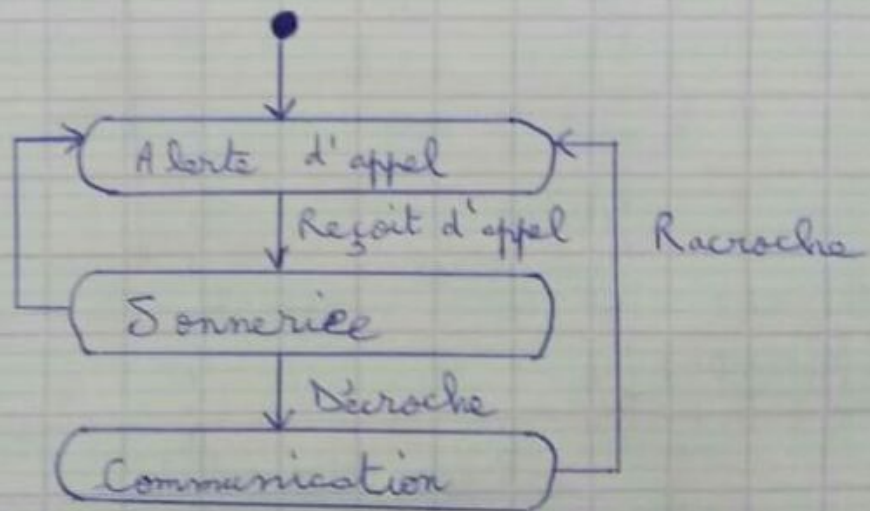 Alerte d'appel
Reçoit d'appel
Racroche
Sonneriee
Décroche
Communication